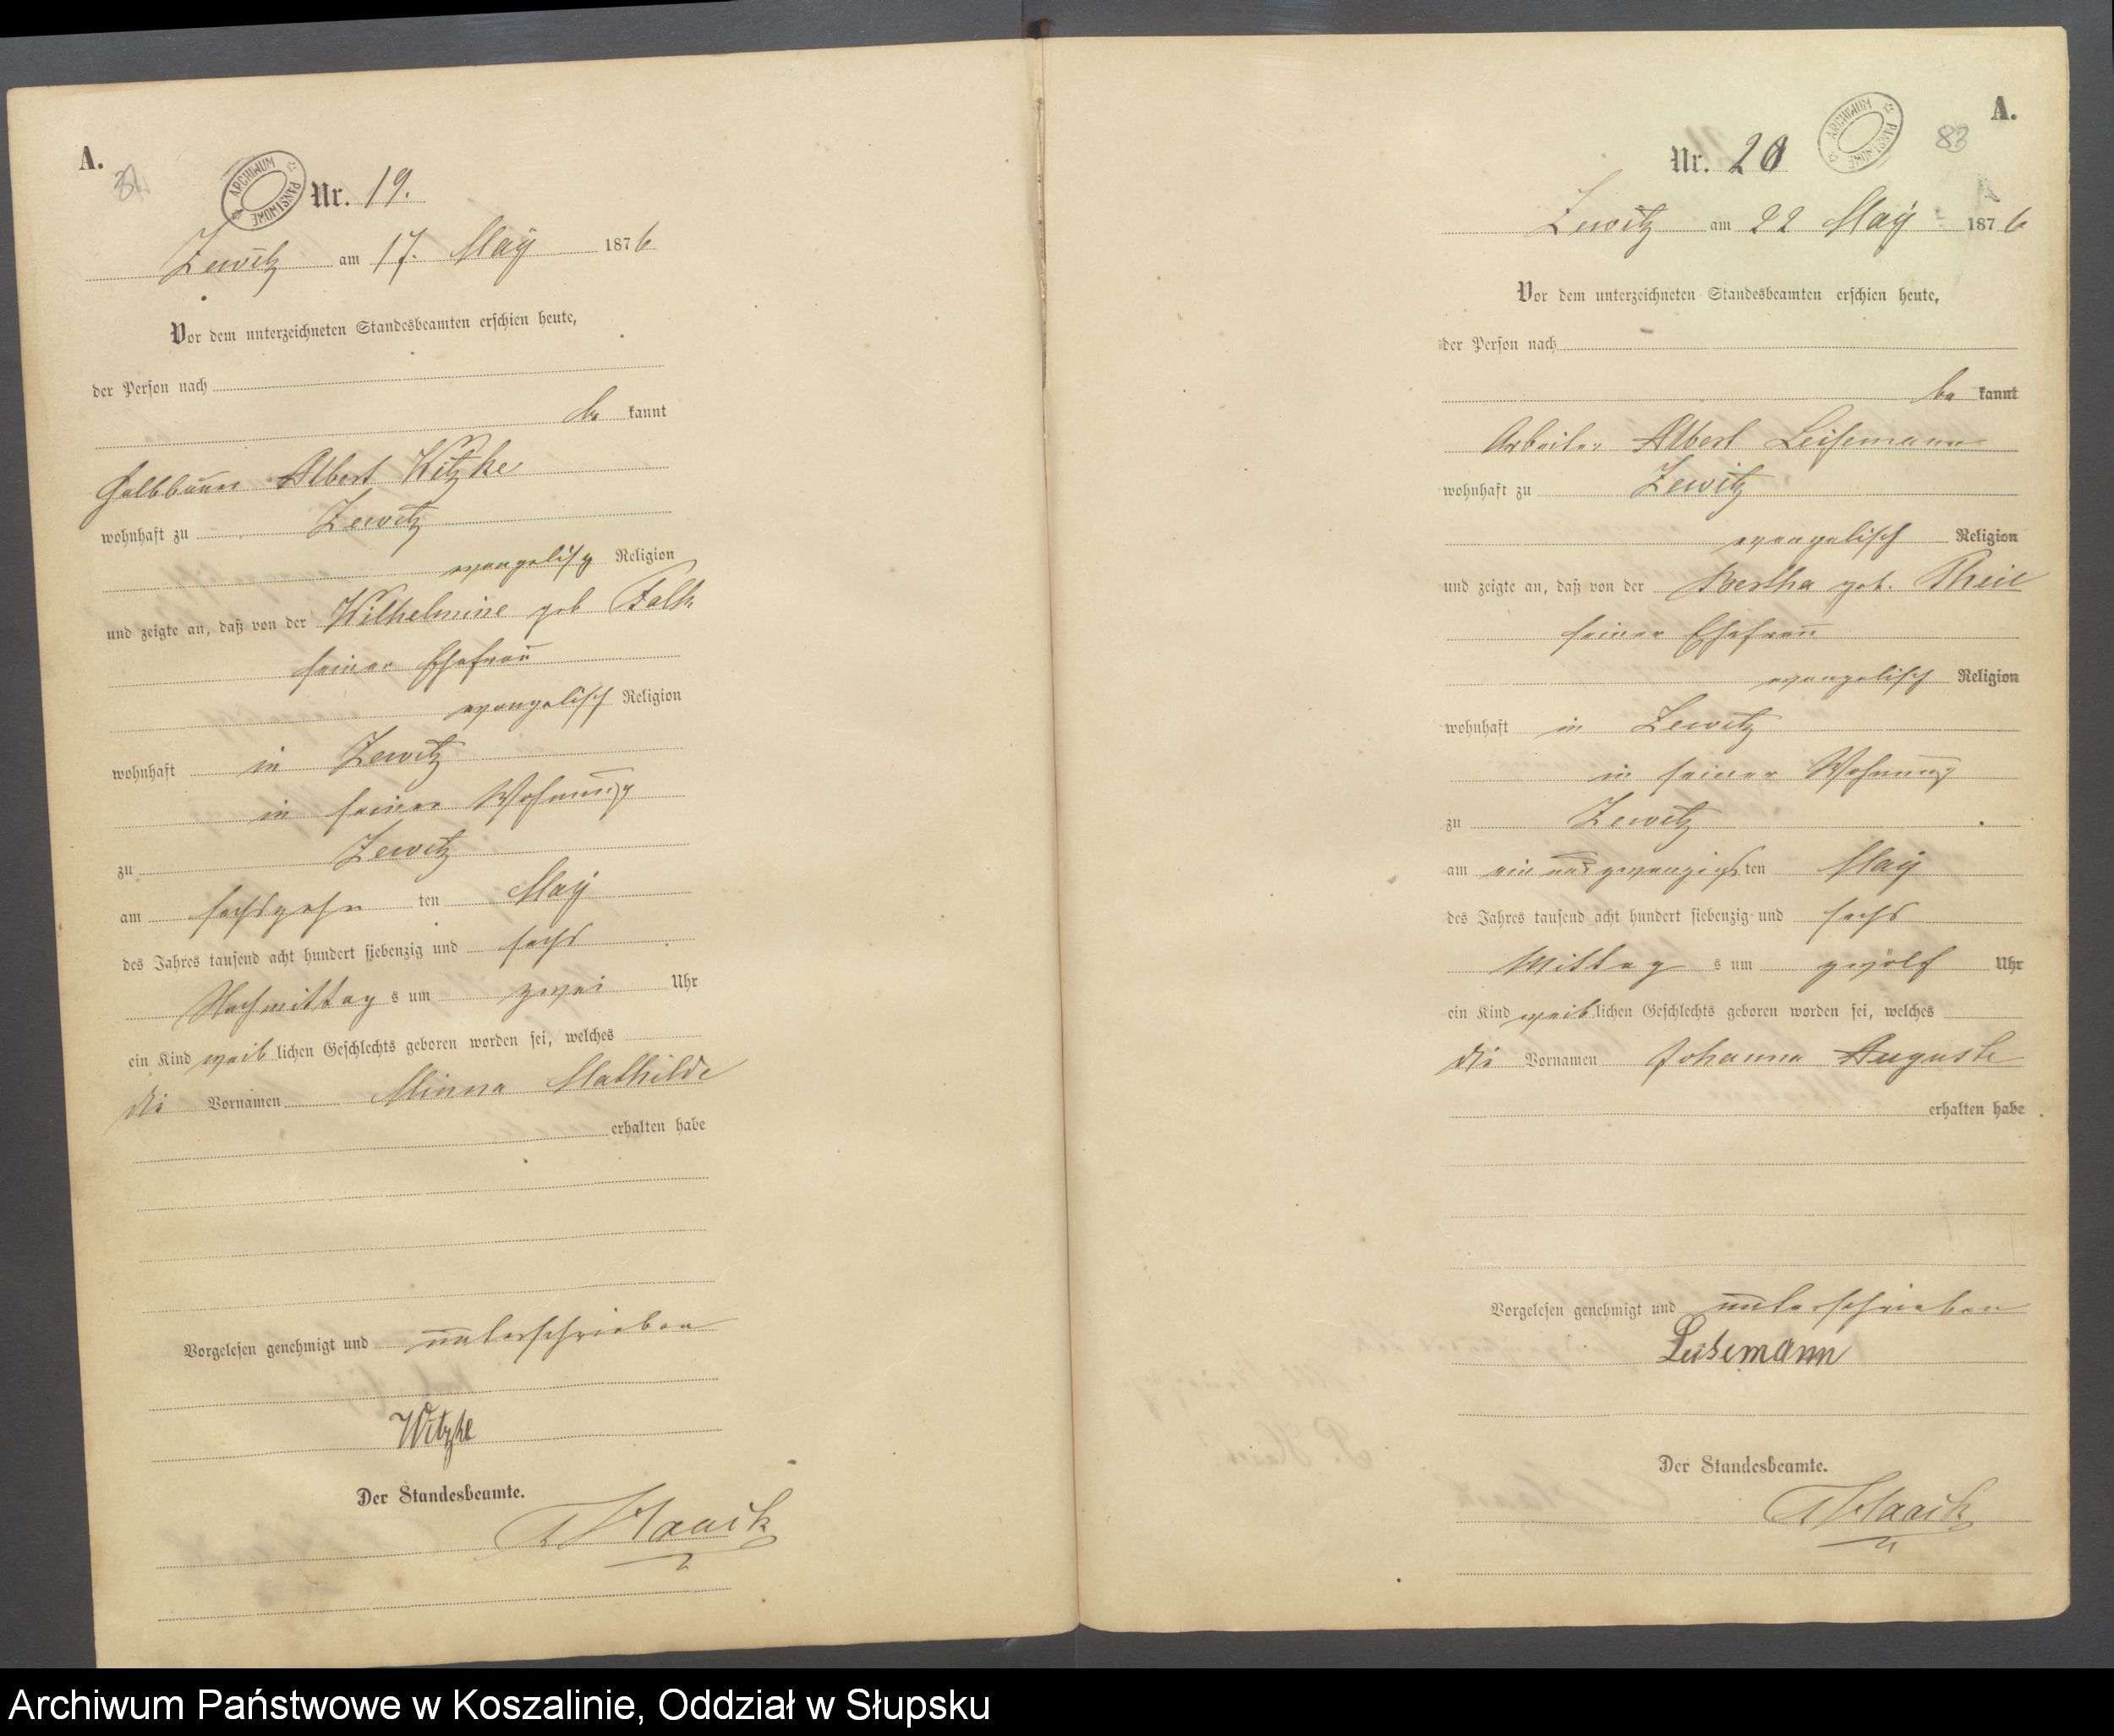 A.
ARCHIWUM PAŃSTWOWE
Nr. 19.
Zewitz am 17. May 1876
Vor dem unterzeichneten Standesbeamten erschien heute,
der Person nach
be kannt
Halbbauer Albert Witzke
wohnhaft zu Zewitz
evangelisch Religion
und zeigte an, daß von der Wilhelmine geb Falk
seiner Ehefrau
evangelisch Religion
wohnhaft in Zewitz
in seiner Wohnung
zu Zewitz
am sechszehn ten May
des Jahres tausend acht hundert siebenzig und sechs
Nachmittag s um zwei Uhr
ein Kind weib lichen Geschlechts geboren worden sei, welches
die Vornamen Minna Mathilde
erhalten habe
Vorgelesen genehmigt und unterschrieben
Witzke
Der Standesbeamte.
Haack
A.
83
ARCHIWUM PAŃSTWOWE
Nr. 20
Zewitz am 22 May 1876
Vor dem unterzeichneten Standesbeamten erschien heute,
der Person nach
be kannt
Arbeiter Albert Leisemann
wohnhaft zu Zewitz
evangelisch Religion
und zeigte an, daß von der Bertha geb. Theil
seiner Ehefrau
evangelisch Religion
wohnhaft in Zewitz
in seiner Wohnung
zu Zewitz
am ein und zwanzigsten May
des Jahres tausend acht hundert siebenzig und sechs
Mittag s um zwölf Uhr
ein Kind weiblichen Geschlechts geboren worden sei, welches
die Vornamen Johanna Auguste
erhalten habe
Vorgelesen genehmigt und unterschrieben
Leisemann
Der Standesbeamte.
Haack
Archiwum Państwowe w Koszalinie, Oddział w Słupsku